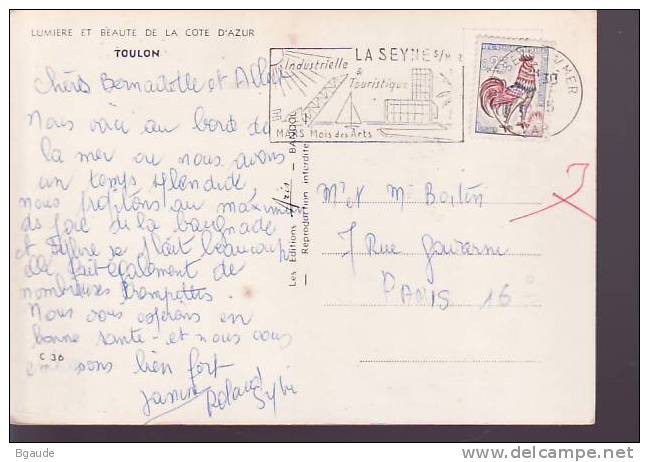 LUMIERE ET BEAUTE DE LA COTE D'AZUR
TOULON
Chers Bernadette et Albert
Nous voici au bord de
la mer ou nous avons
un temps splendide,
nous profitons au maximum
de la baignade
et Sylvie se plait beaucoup
elle fait également de
nombreuses trempettes.
Nous vous espérons en
bonne santé - et nous vous
embrassons bien fort
Janine Roland
Sylvie
C 36
Les Editions Aris - BANDOL
Reproduction interdite
LA SEYNE S/MER
Industrielle
&
Touristique
MARS Mois des Arts
VAR
Mr et Me
7 Rue
PARIS 16
Bgaude
delcampe.net